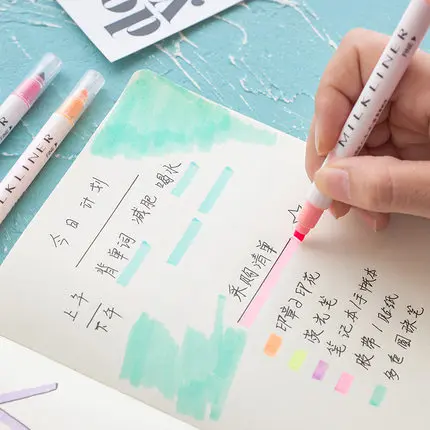 MILKLINER
FINE
MILKLINER
FINE
今日计划
背单词 减肥 喝水
上午
下午
采购清单
印章&印花
荧光笔
笔记本/手帐本
胶带/贴纸
多色圆珠笔